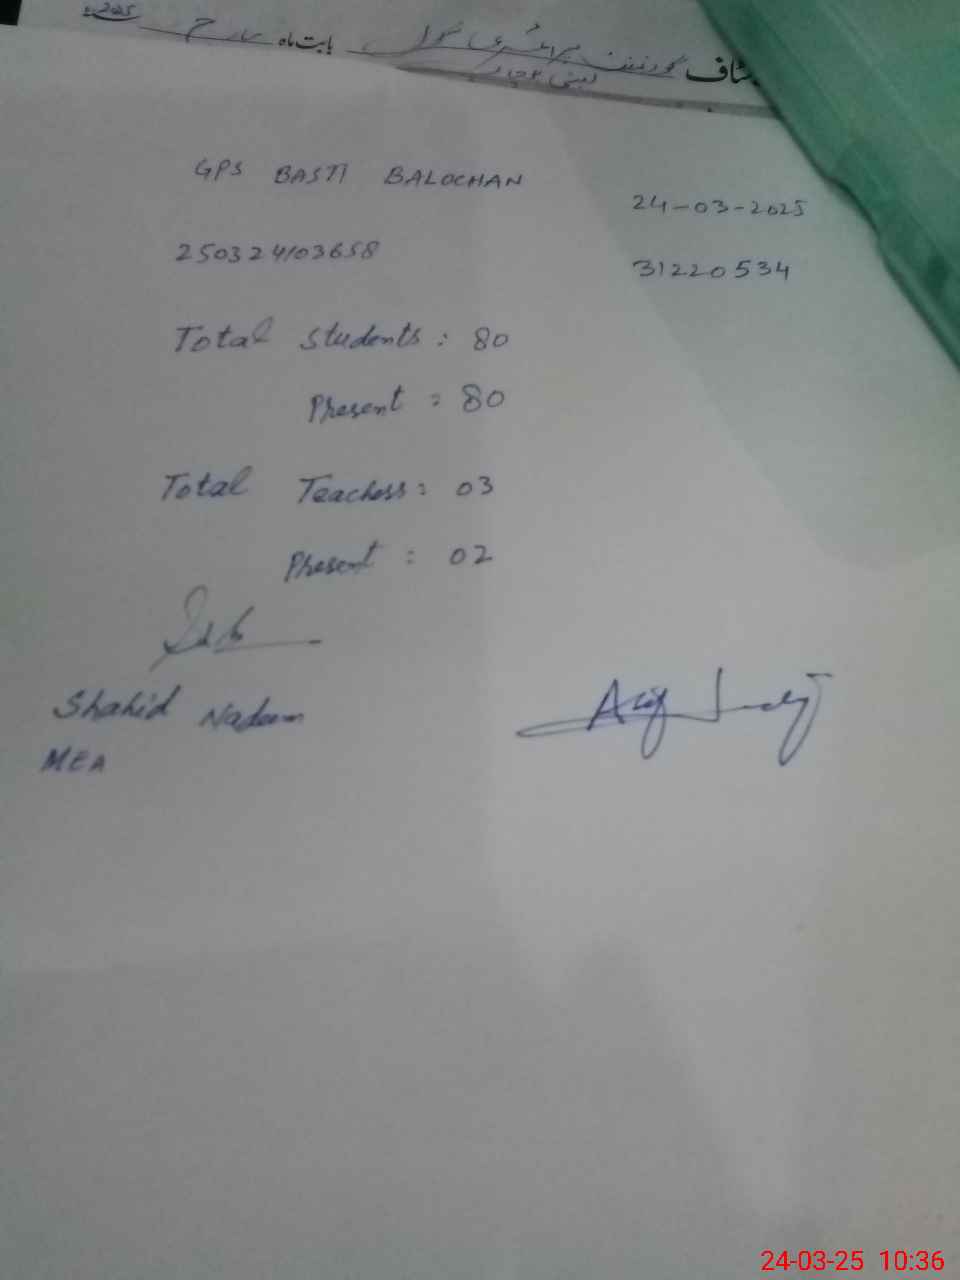 سٹاف گورنمنٹ پرائمری سکول بابت ماہ مارچ 2025ء
بستی بلوچاں
GPS BASTI BALOCHAN
24-03-2025
250324103658
31220534
Total Students : 80
Present : 80
Total Teachers : 03
Present : 02
Shahid Nadeem
MEA
24-03-25 10:36